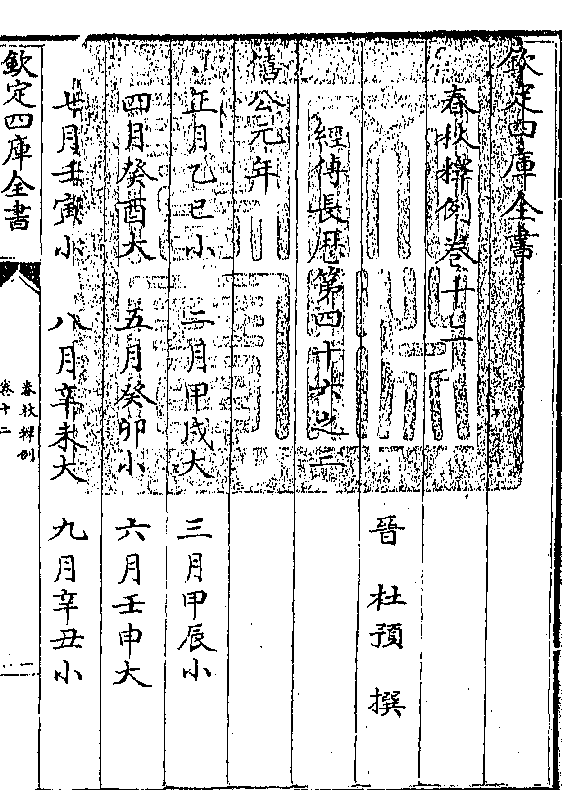 欽定四庫全書
春秋釋例卷十二
晉 杜預 撰
經傳長歷第四十六之三
僖公元年
正月乙巳小 二月甲戌大 三月甲辰小
四月癸酉大 五月癸卯小 六月壬申大
七月壬寅小 八月辛未大 九月辛丑小
欽定四庫全書
春秋釋例
卷十二
一